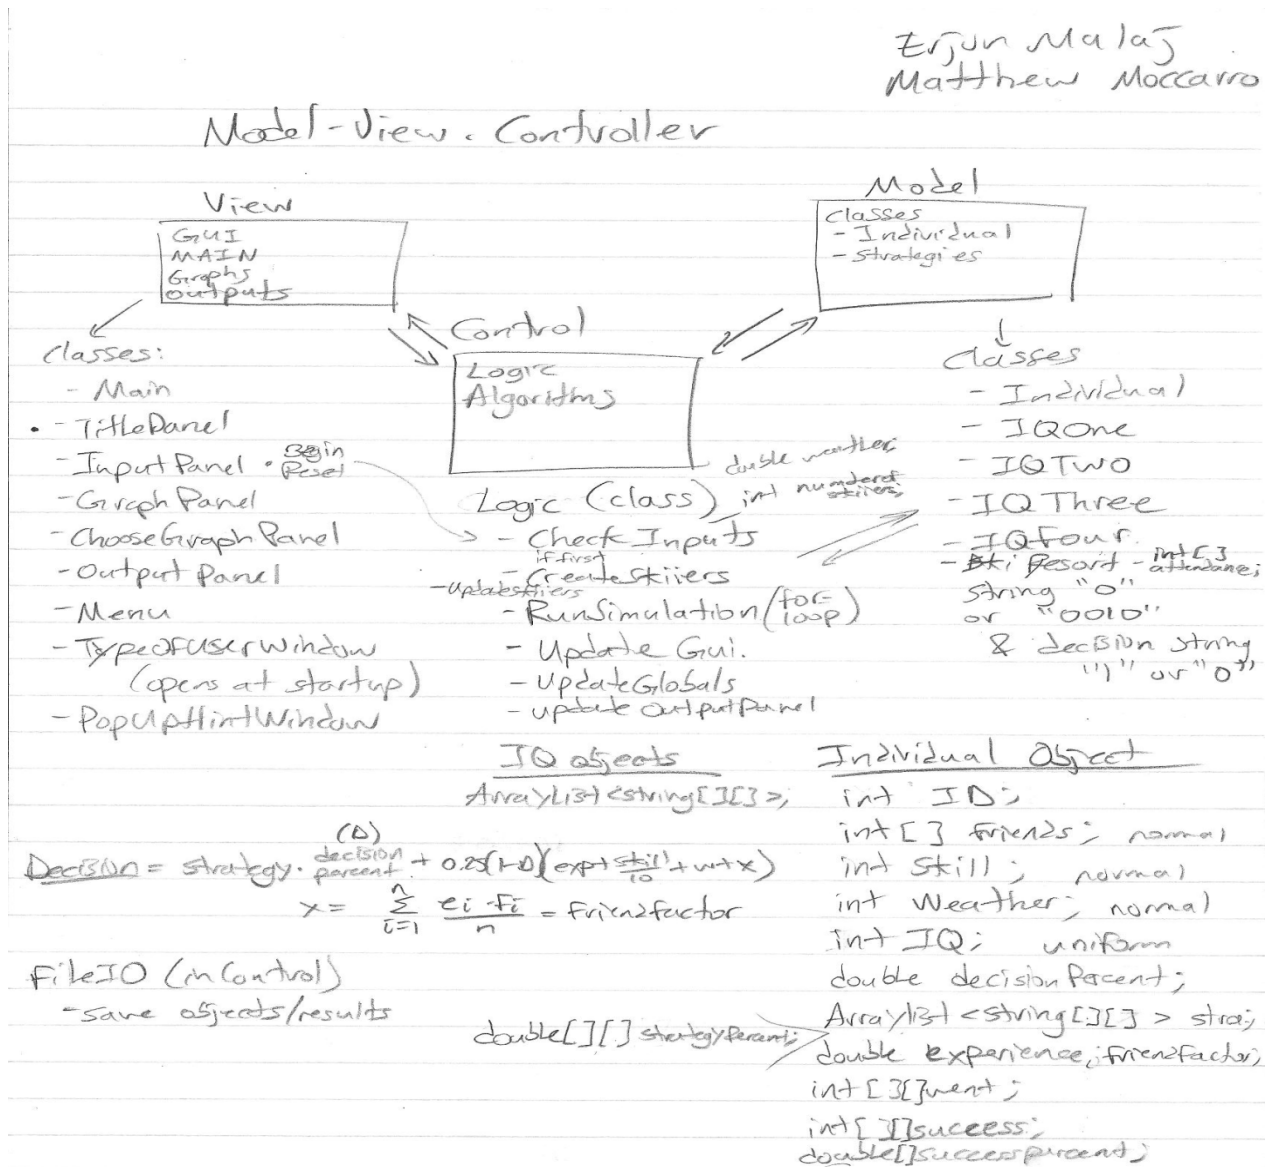 Erjun Malaj
Matthew Moccarro
Model-View-Controller
View
GUI
MAIN
Graphs
Outputs
Model
Classes
- Individual
- Strategies
Control
Logic
Algorithms
Classes:
- Main
- TitlePanel
- InputPanel · Begin
Reset
- GraphPanel
- ChooseGraphPanel
- OutputPanel
- Menu
- TypeOfUserWindow
(opens at startup)
- PopUpHintWindow
double weather;
int numberof
skiiers;
Logic (class)
- Check Inputs
if first
- CreateSkiiers
- Updateskiiers
- RunSimulation (for-
loop)
- Update Gui.
- UpdateGlobals
- Update OutputPanel
Classes
- Individual
- IQOne
- IQTwo
- IQThree
- IQFour
- Ski Resort - int[]
attendance;
string "0"
or "0010"
& decision string
"1" or "0"
IQ objects
ArrayList<string[][]>;
(D)
Decision = strategy · decision percent + 0.25(1-D)(exp + skill/10 + w + x)
x = n Σ i=1 ei·Fi/n = Friend factor
FileIO (in Control)
- save objects/results
double[][] strategyPercent;
Individual Object
int ID;
int[] friends; normal
int skill; normal
int Weather; normal
int IQ; uniform
double decisionPercent;
ArrayList<string[][]> stra;
double experience, friendfactor;
int[][] went;
int[][] success;
double[] successpercent;